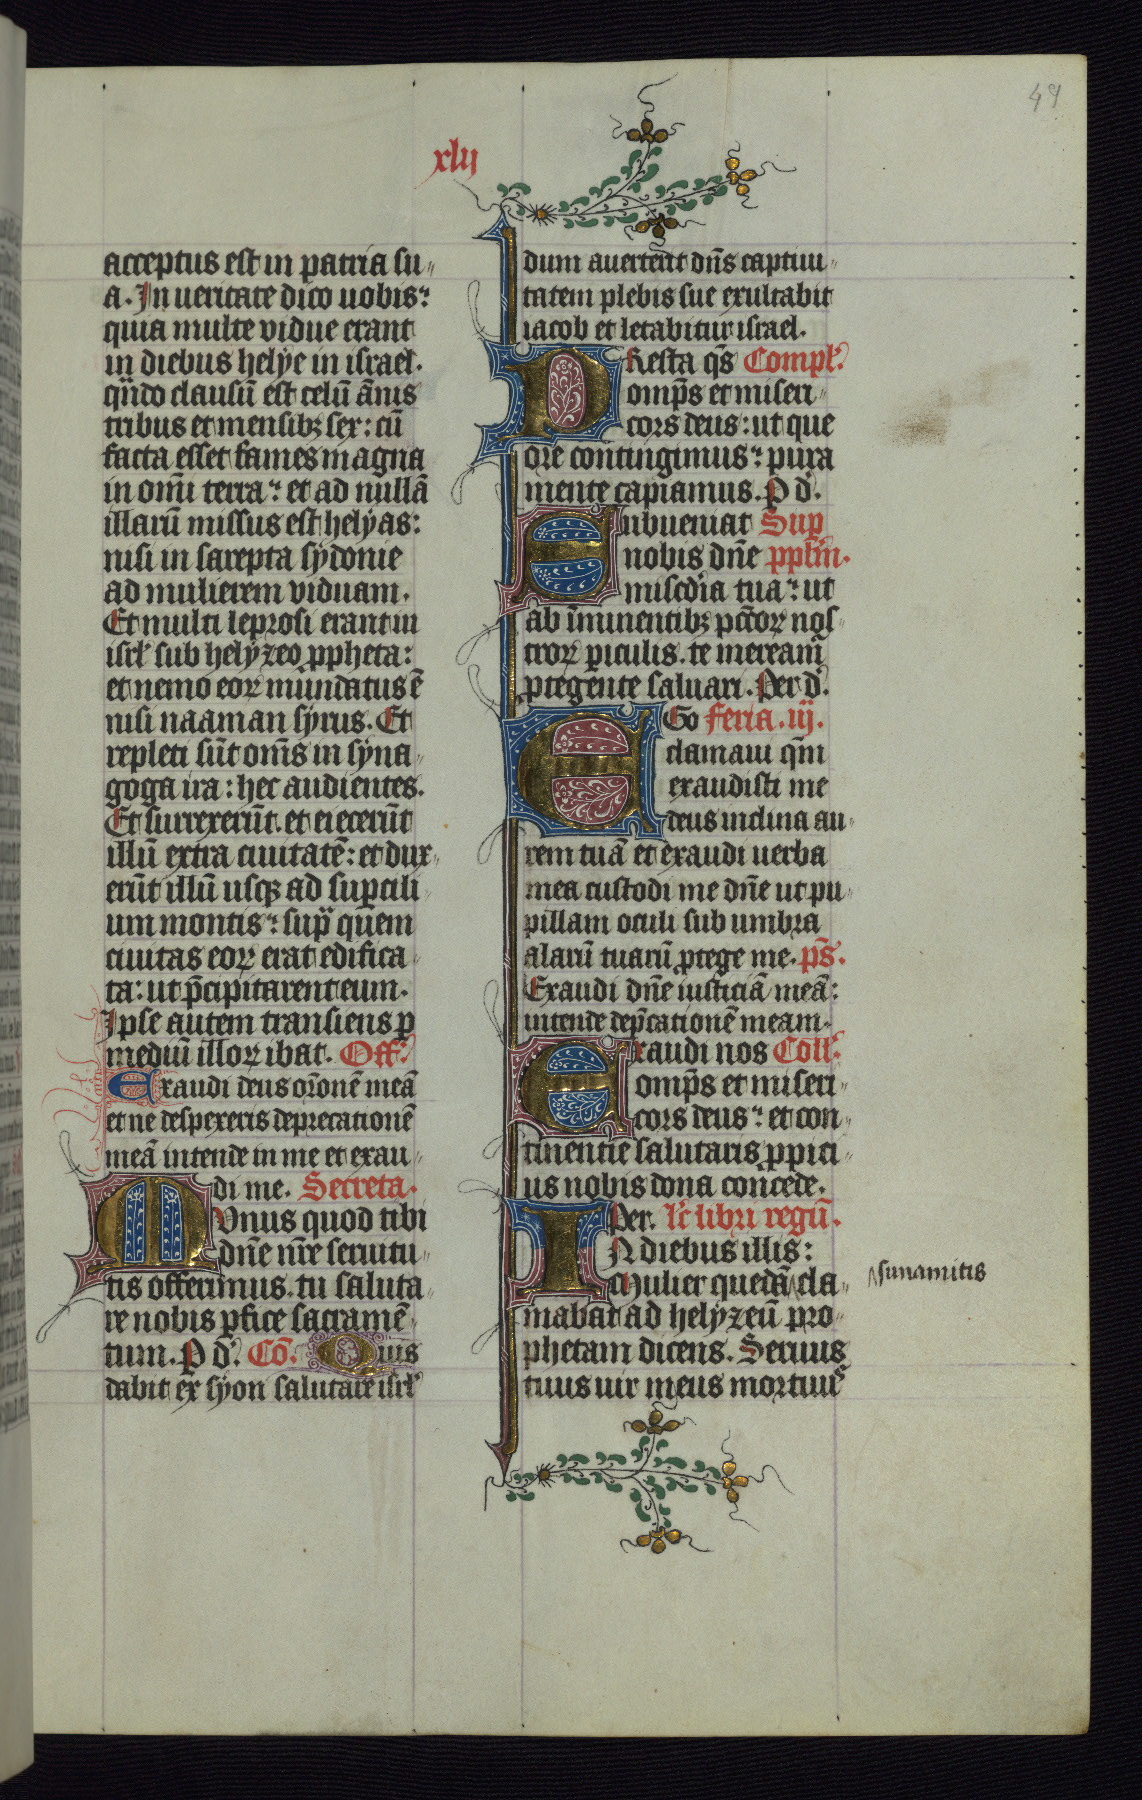 49
xlij
acceptus est in patria su
a. In ueritate dico uobis:
quia multe vidue erant
in diebus helye in israel.
qn̄do clausū est celū ānis
tribus et mensibꝫ sex: cū
facta esset fames magna
in om̄i terra: et ad nullā
illarū missus est helyas:
nisi in sarepta sydonie
ad mulierem viduam.
Et multi leprosi erant in
isrl̄ sub helyzeo ꝓpheta:
et nemo eoꝝ mundatus ē
nisi naaman syrus. Et
repleti sūt om̄s in syna
goga ira: hec audientes.
Et surrexerūt. et eiecerūt
illū extra ciuitatē: et dux
erūt illū usqꝫ ad suꝑcili
um montis: supͣ quem
ciuitas eoꝝ erat edifica
ta: ut p̄cipitarent eum.
Ipse autem transiens ꝑ
mediū illoꝝ ibat. Off.
Exaudi deus or̄onē meā
et ne despexeris deprecationē
meā intende in me et exau
di me. Secreta.
Munus quod tibi
dn̄e nr̄e seruitu
tis offerimus. tu saluta
re nobis ꝑfice sacramē
tum. P d̄. Cō. Quis
dabit ex syon salutare isrl̄
dum auerterit dn̄s captiui
tatem plebis sue exultabit
iacob et letabitur israel.
PResta qs̄ Compl̄.
omp̄s et miseri
cors deus: ut que
ore contingimus: pura
mente capiamus. P d̄.
SUbueniat Suꝑ
nobis dn̄e ppl̄m.
miscd̄ia tua: ut
ab īminentibꝫ pctōꝝ nos
troꝝ ꝑiculis. te mereamͥ
ꝓtegente saluari. Per d̄.
EGo Feria. iij.
clamaui qm̄
exaudisti me
deus inclina au
rem tuā et exaudi uerba
mea custodi me dn̄e ut pu
pillam oculi sub umbra
alarū tuarū ꝓtege me. pS̄.
Exaudi dn̄e iusticiā meā:
intende dep̄cationē meam.
Exaudi nos Coll̄.
omp̄s et miseri
cors deus: et con
tinentie salutaris ꝓpici
us nobis dona concede.
Per. lc̄ libri regū.
IN diebus illis:
Mulier quedā cla
mabat ad helyzeū pro
phetam dicens. Seruus
tuus uir meus mortuus
sunamitis